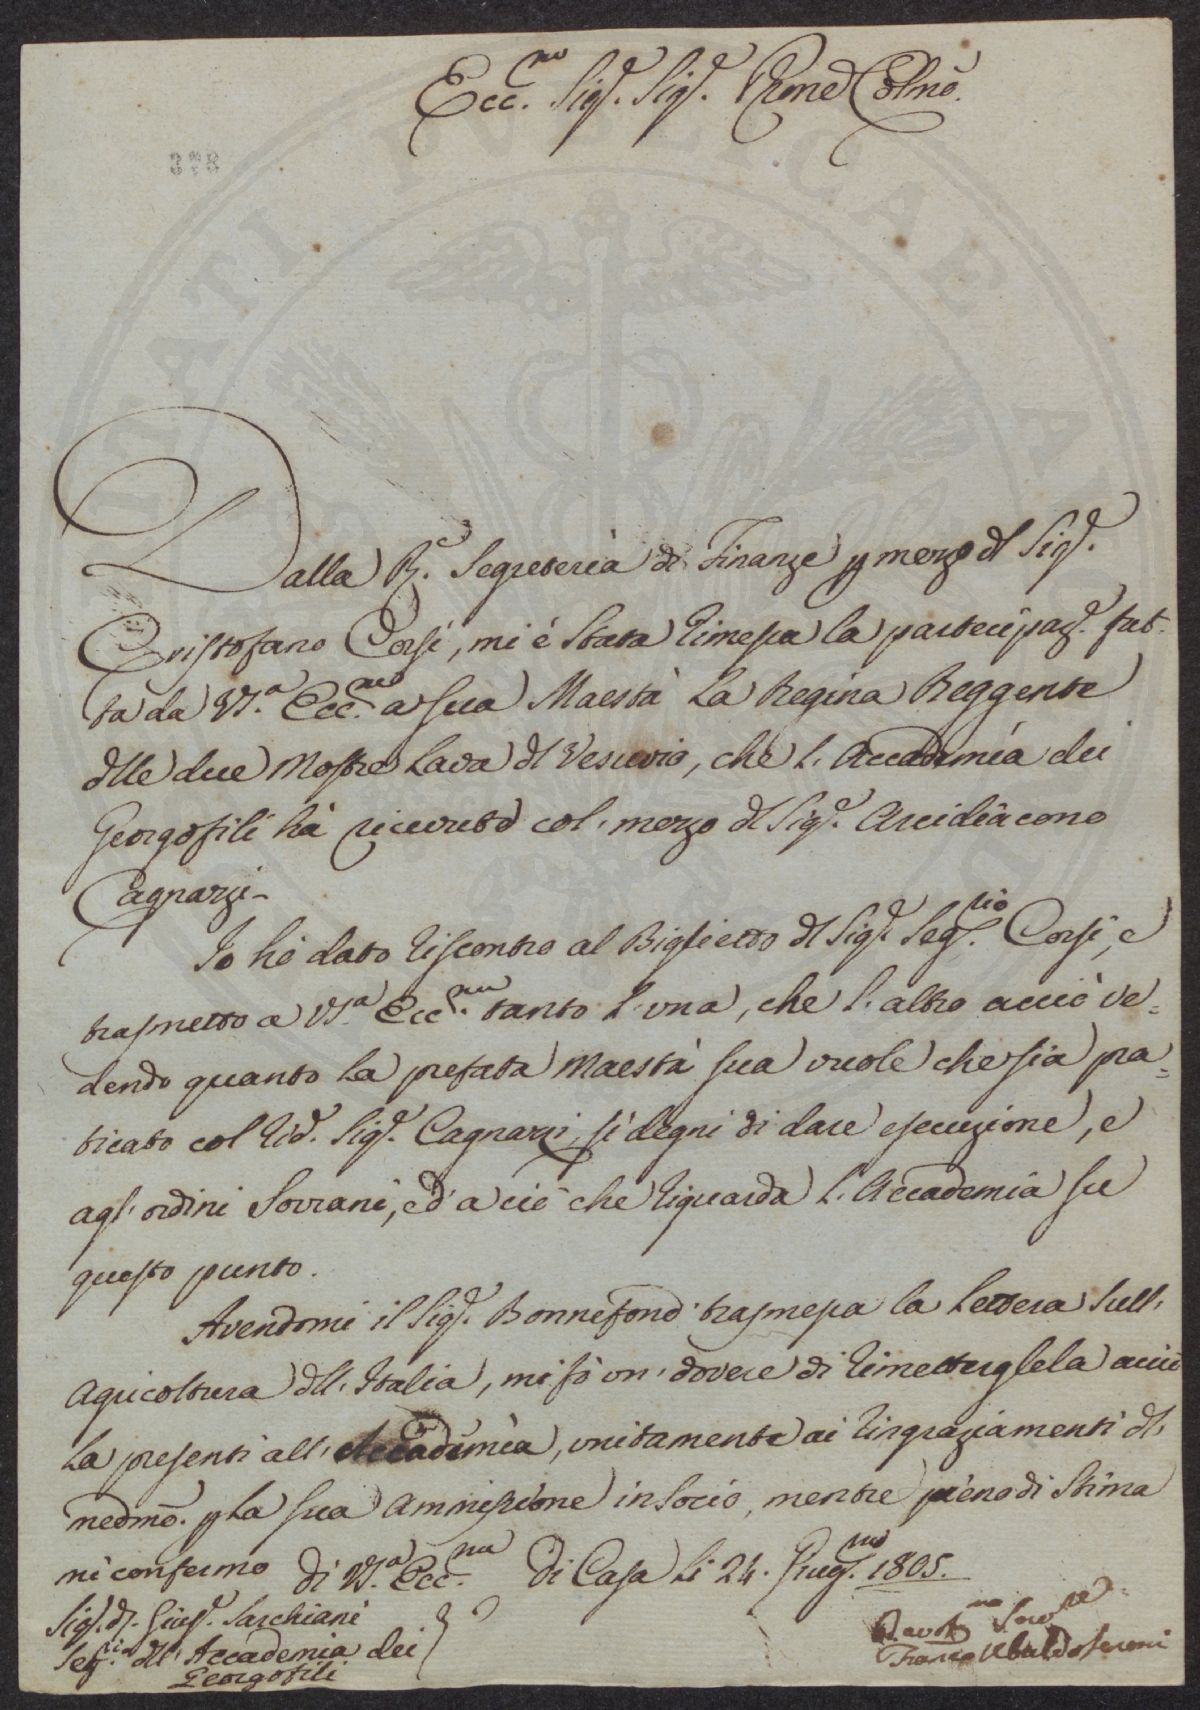 Ecc.mo Sig.r Sig.r Prone Colmo.
Dalla R.e Segreteria di Finanze p mezzo dl Sig.r
Cristofano Corsi, mi è stata rimessa la partecipaz.e fat-
ta da V.a Ecc.ma a sua Maestà La Regina Reggente
dlle due Mostre Lava dl Vesuvio, che l'Accademia dei
Georgofili hà ricevuto col' mezzo dl Sig.r Arcidiacono
Cagnazzi-
Io hò dato riscontro al Biglietto dl Sig.r Seg.rio Corsi, e
trasmetto a V.a Ecc.ma tanto l'una, che l'altro acciò ve-
dendo quanto La prefata Maestà sua vuole che sia pra=
ticato col rid.o Sig.r Cagnazzi, si degni di dare esecuzione, e
agl'ordini Sovrani, ed' a ciò che riguarda l'Accademia su
questo punto.
Avendomi il Sig.r Bonnefond trasmessa la Lettera sull'
Agricoltura dll'Italia, mi fò un' dovere di rimetterglela acciò
La presenti all' Accademia, unitamente ai ringraziamenti dl'
medmo. p La sua Ammissione in Socio, mentre pieno di stima
mi confermo di V.a Ecc.ma Di Casa Li 24. Giug.no 1805.
Sig.r d.r Gius.e Sarchiani
Seg.rio dll'Accademia dei
Georgofili
Devot.mo Serv.re
Franco Ubaldo Feroni